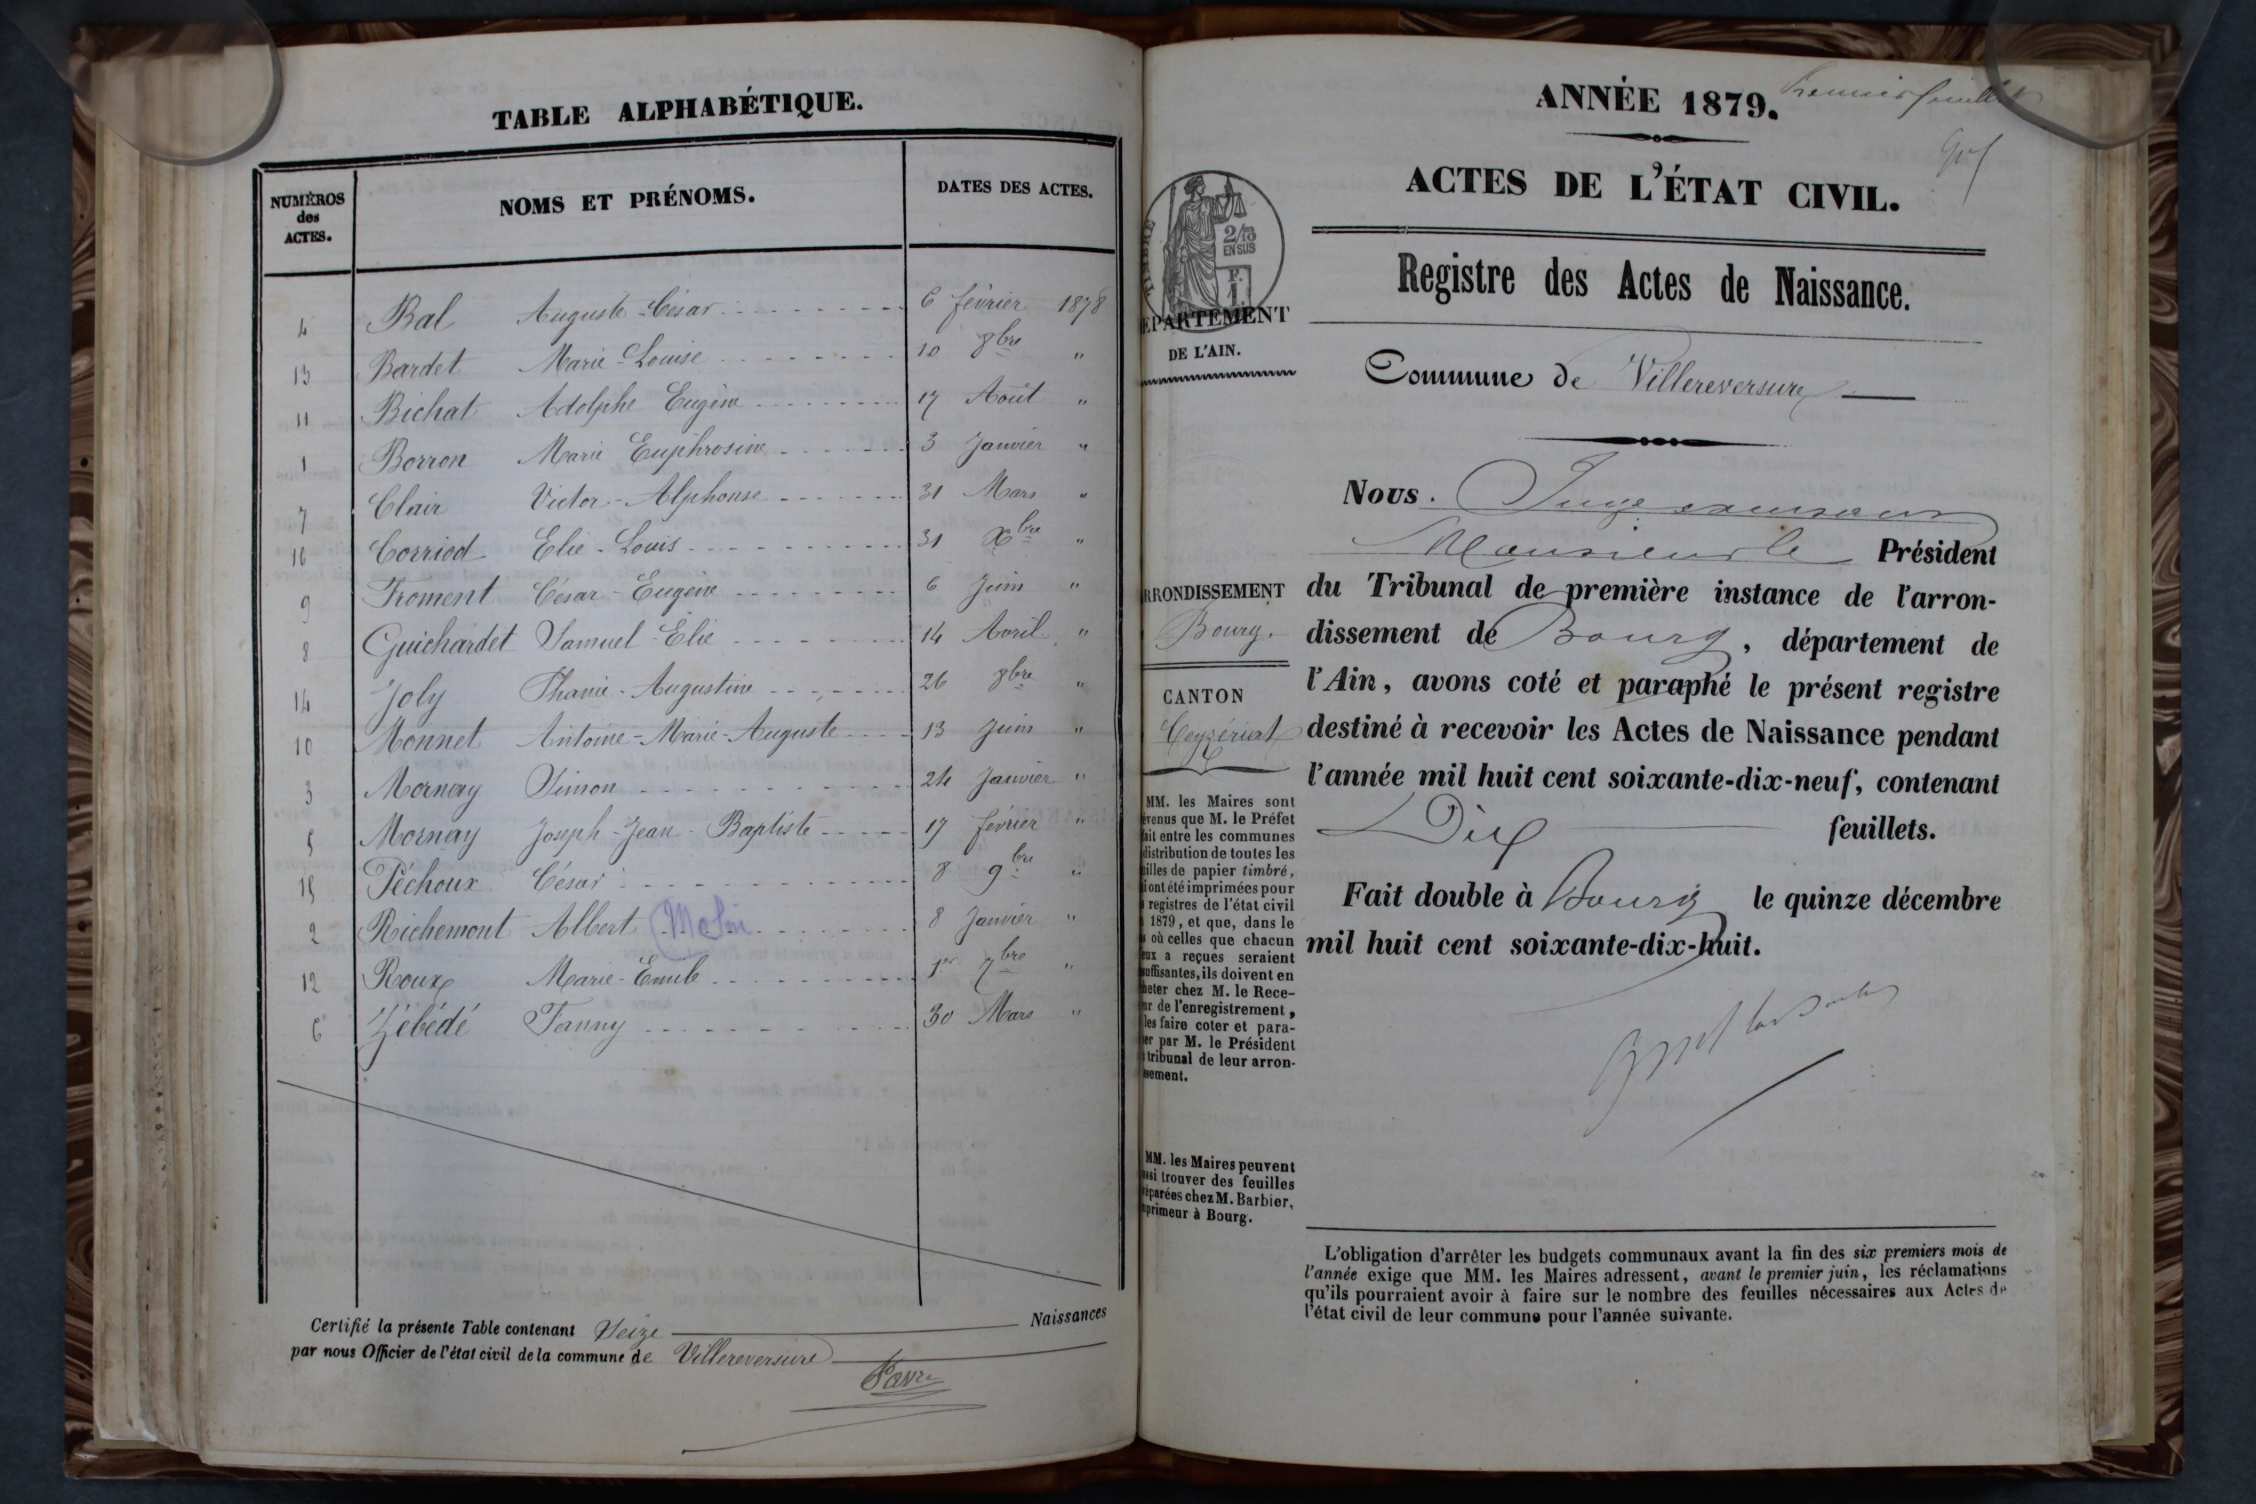 TABLE ALPHABÉTIQUE.
NUMÉROS des ACTES. NOMS ET PRÉNOMS. DATES DES ACTES.
4 Bal Auguste-César 6 février 1878
13 Bardet Marie-Louise 10 8bre "
11 Bichat Adolphe Eugène 17 Août "
1 Borron Marie Euphrosine 3 Janvier "
7 Clair Victor-Alphonse 31 Mars "
16 Corriod Elie-Louis 31 Xbre "
9 Froment César-Eugène 6 Juin "
8 Guichardet Samuel-Elie 14 Avril "
14 Joly Phanie-Augustine 26 8bre "
10 Monnet Antoine-Marie-Auguste 13 Juin "
3 Mornay Simon 24 Janvier "
5 Mornay Joseph-Jean-Baptiste 17 février "
15 Péchoux César 8 9bre "
2 Richemont Albert 8 Janvier "
12 Roux Marie-Emile 1er 7bre "
6 Zébédé Fanny 30 Mars "
Certifié la présente Table contenant Seize Naissances
par nous Officier de l'état civil de la commune de Villereversure
Favre
ANNÉE 1879. Premier feuillet
ACTES DE L'ÉTAT CIVIL.
Registre des Actes de Naissance.
TIMBRE
2/10
EN SUS
F.
1.
EPARTEMENT
DE L'AIN.
Commune de Villereversure
RRONDISSEMENT
Bourg.
CANTON
Ceyzériat
MM. les Maires sont
évenus que M. le Préfet
ait entre les communes
distribution de toutes les
illes de papier timbré,
i ont été imprimées pour
registres de l'état civil
1879, et que, dans le
où celles que chacun
eux a reçues seraient
suffisantes, ils doivent en
heter chez M. le Rece-
ur de l'enregistrement,
les faire coter et para-
er par M. le Président
tribunal de leur arron-
ssement.
MM. les Maires peuvent
ussi trouver des feuilles
éparées chez M. Barbier,
primeur à Bourg.
Nous. Juge
Monsieur le Président
du Tribunal de première instance de l'arron-
dissement de Bourg, département de
l'Ain, avons coté et paraphé le présent registre
destiné à recevoir les Actes de Naissance pendant
l'année mil huit cent soixante-dix-neuf, contenant
Dix feuillets.
Fait double à Bourg le quinze décembre
mil huit cent soixante-dix-huit.
L'obligation d'arrêter les budgets communaux avant la fin des six premiers mois de
l'année exige que MM. les Maires adressent, avant le premier juin, les réclamations
qu'ils pourraient avoir à faire sur le nombre des feuilles nécessaires aux Actes de
l'état civil de leur commune pour l'année suivante.